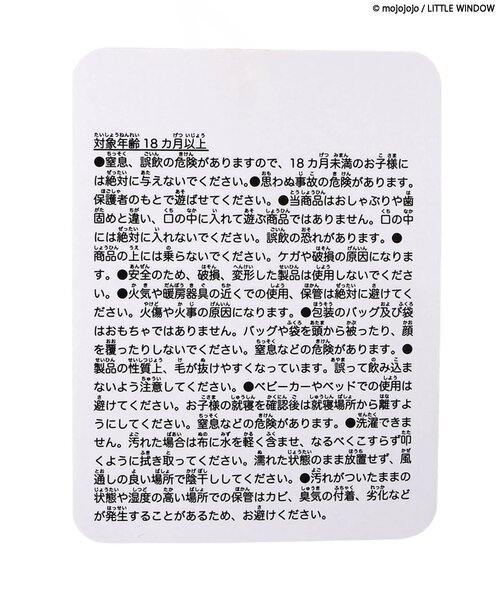 © mojojojo / LITTLE WINDOW
対象年齢18カ月以上
●窒息、誤飲の危険がありますので、18カ月未満のお子様に
は絶対に与えないでください。●思わぬ事故の危険があります。
保護者のもとで遊ばせてください。●当商品はおしゃぶりや歯
固めと違い、口の中に入れて遊ぶ商品ではありません。口の中
には絶対に入れないでください。誤飲の恐れがあります。●
商品の上には乗らないでください。ケガや破損の原因になりま
す。●安全のため、破損、変形した製品は使用しないでくださ
い。●火気や暖房器具の近くでの使用、保管は絶対に避けてく
ださい。火傷や火事の原因になります。●包装のバッグ及び袋
はおもちゃではありません。バッグや袋を頭から被ったり、顔
を覆ったりしないでください。窒息などの危険があります。●
製品の性質上、毛が抜けやすくなっています。誤って飲み込ま
ないよう注意してください。●ベビーカーやベッドでの使用は
避けてください。お子様の就寝を確認後は就寝場所から離すよ
うにしてください。窒息などの危険があります。●洗濯できま
せん。汚れた場合は布に水を軽く含ませ、なるべくこすらず叩
くように拭き取ってください。濡れた状態のまま放置せず、風
通しの良い場所で陰干ししてください。●汚れがついたままの
状態や湿度の高い場所での保管はカビ、臭気の付着、劣化など
が発生することがあるため、お避けください。